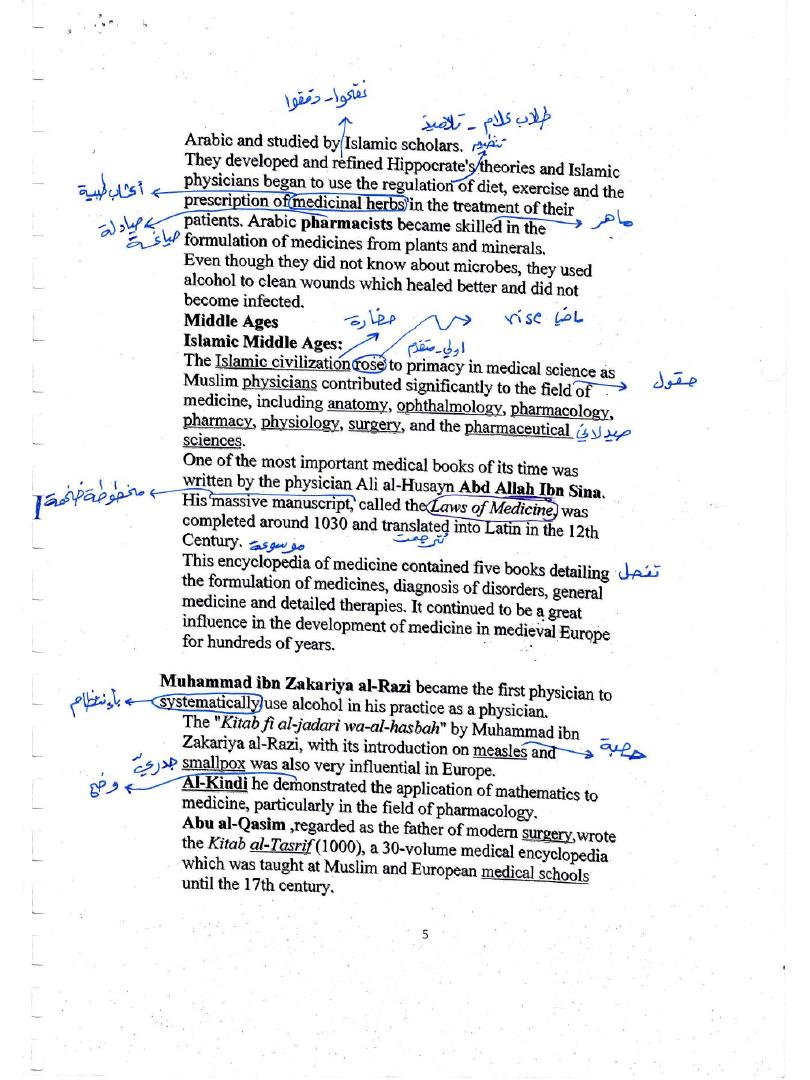 نقحوا - دققوا
طلاب علام - تلاميذ
Arabic and studied by Islamic scholars. تنظيم
They developed and refined Hippocrate's theories and Islamic
physicians began to use the regulation of diet, exercise and the
أعشاب طبية
prescription of medicinal herbs in the treatment of their
صيادلة
patients. Arabic pharmacists became skilled in the
ماهر
صياغة
formulation of medicines from plants and minerals.
Even though they did not know about microbes, they used
alcohol to clean wounds which healed better and did not
become infected.
Middle Ages
حضارة
rise ماضيا
Islamic Middle Ages:
اولي - متقدم
The Islamic civilization rose to primacy in medical science as
Muslim physicians contributed significantly to the field of
حقول
medicine, including anatomy, ophthalmology, pharmacology,
pharmacy, physiology, surgery, and the pharmaceutical صيدلاني
sciences.
One of the most important medical books of its time was
written by the physician Ali al-Husayn Abd Allah Ibn Sina.
مخطوطة ضخمة
His massive manuscript, called the Laws of Medicine, was
completed around 1030 and translated into Latin in the 12th
Century. موسوعة ترجمت
This encyclopedia of medicine contained five books detailing تفصل
the formulation of medicines, diagnosis of disorders, general
medicine and detailed therapies. It continued to be a great
influence in the development of medicine in medieval Europe
for hundreds of years.
Muhammad ibn Zakariya al-Razi became the first physician to
بأنتظام
systematically use alcohol in his practice as a physician.
The "Kitab fi al-jadari wa-al-hasbah" by Muhammad ibn
Zakariya al-Razi, with its introduction on measles and
حصبة
جدري smallpox was also very influential in Europe.
وضح
Al-Kindi he demonstrated the application of mathematics to
medicine, particularly in the field of pharmacology.
Abu al-Qasim ,regarded as the father of modern surgery, wrote
the Kitab al-Tasrif (1000), a 30-volume medical encyclopedia
which was taught at Muslim and European medical schools
until the 17th century.
5